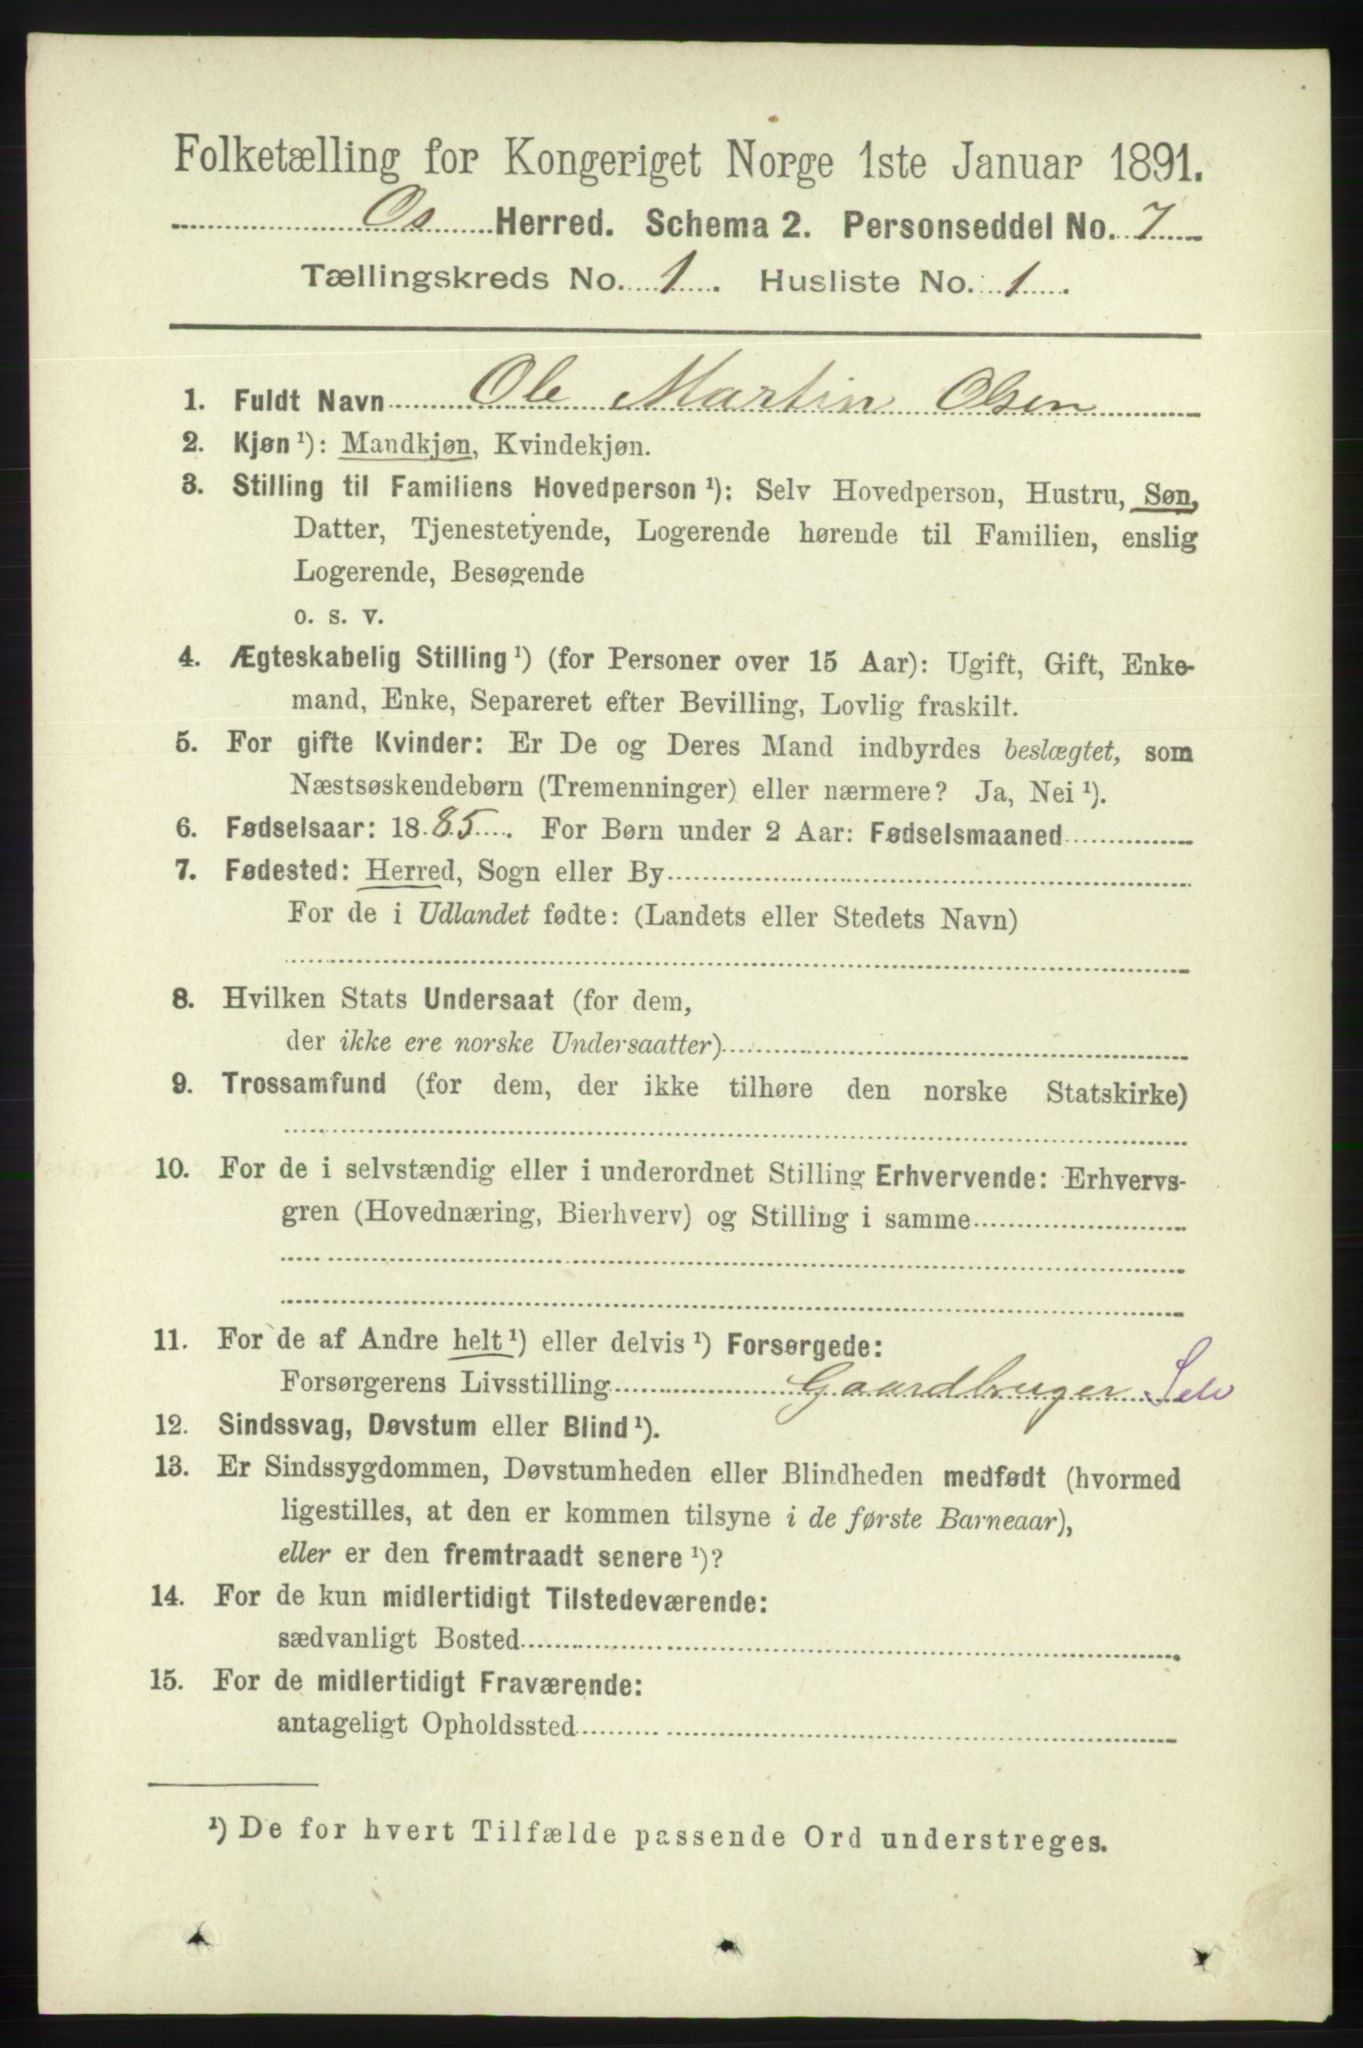 Folketælling for Kongeriget Norge 1ste Januar 1891.
Os Herred. Schema 2. Personseddel No. 7
Tællingskreds No. 1. Husliste No. 1.
1. Fuldt Navn Ole Martin Olsen
2. Kjøn¹): Mandkjøn, Kvindekjøn.
3. Stilling til Familiens Hovedperson¹): Selv Hovedperson, Hustru, Søn,
Datter, Tjenestetyende, Logerende hørende til Familien, enslig
Logerende, Besøgende
o. s. v.
4. Ægteskabelig Stilling¹) (for Personer over 15 Aar): Ugift, Gift, Enke-
mand, Enke, Separeret efter Bevilling, Lovlig fraskilt.
5. For gifte Kvinder: Er De og Deres Mand indbyrdes beslægtet, som
Næstsøskendebørn (Tremenninger) eller nærmere? Ja, Nei¹).
6. Fødselsaar: 1885. For Børn under 2 Aar: Fødselsmaaned
7. Fødested: Herred, Sogn eller By
For de i Udlandet fødte: (Landets eller Stedets Navn)
8. Hvilken Stats Undersaat (for dem,
der ikke ere norske Undersaatter)
9. Trossamfund (for dem, der ikke tilhøre den norske Statskirke)
10. For de i selvstændig eller i underordnet Stilling Erhvervende: Erhvervs-
gren (Hovednæring, Bierhverv) og Stilling i samme
11. For de af Andre helt¹) eller delvis¹) Forsørgede:
Forsørgerens Livsstilling Gaardbruger Selv
12. Sindssvag, Døvstum eller Blind¹).
13. Er Sindssygdommen, Døvstumheden eller Blindheden medfødt (hvormed
ligestilles, at den er kommen tilsyne i de første Barneaar),
eller er den fremtraadt senere¹)?
14. For de kun midlertidigt Tilstedeværende:
sædvanligt Bosted
15. For de midlertidigt Fraværende:
antageligt Opholdssted
¹) De for hvert Tilfælde passende Ord understreges.